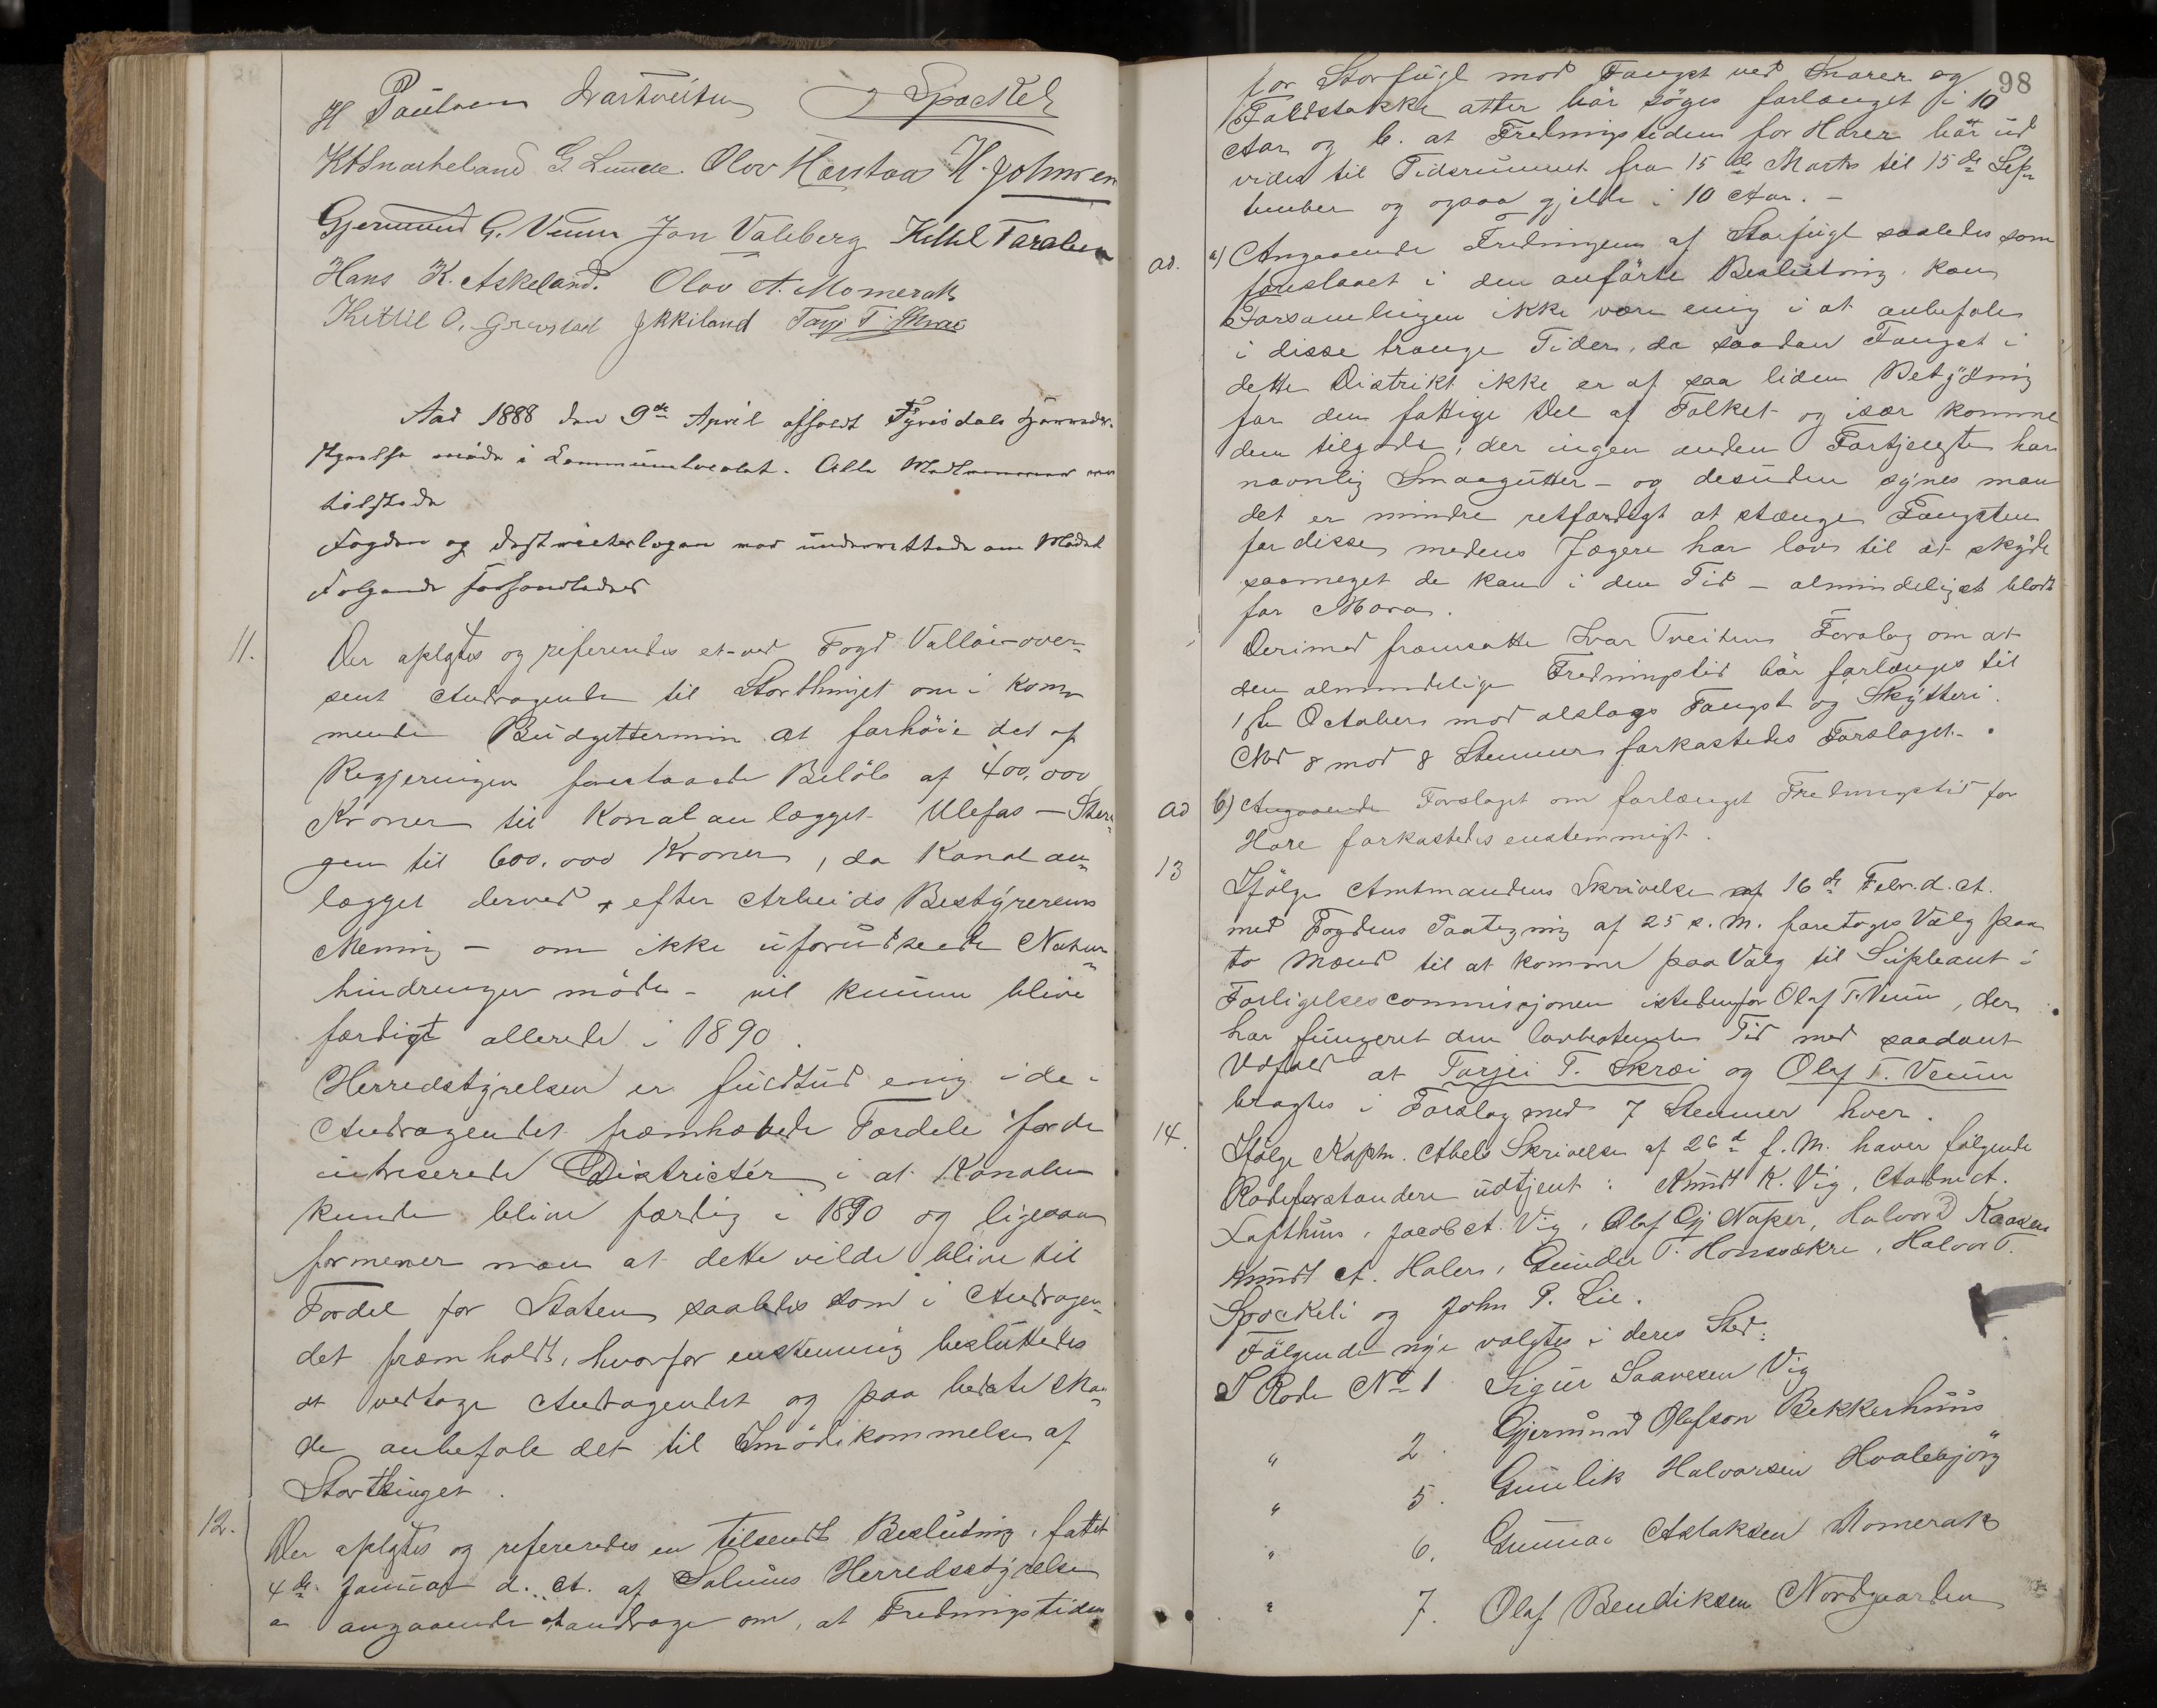 H Paulsen IvarTveiten Spockeli
K H Snarheland G. Lunde. Olov Haustaas H. Johnsen
Gjermund G. Veum Jon Valeberg Kittil Taraldsen
Hans K. Askeland. Olov A. Momerak
Kittil O. Grivstad J Kkiland Tarjei T. Skræi
Aar 1888 den 9de April afholdt Fyrisdals Herreds-
styrelse møde i Communelocalet. Alle Medlemmer var
tilstede
Fogden og Distrietslægen var underrettede om Mødet
Følgende forhandledes
11. Der oplystes og refereredes et ved Fogd Valløe over-
sent Andragende til Storthinget om i kom-
mende Budgettermin at forhöie det af
Regjeringen foreslaaede Belöb af 400,000
Kroner til Kanalanlægget Ulefos – Stren-
gen til 600.000 Kroner, da Kanalan-
lægget derved – efter Arbeids Bestÿrerens
Mening – om ikke uforudseede Natur-
hindringer möde – vil kunne blive
færdigt allerede i 1890.
Herredstÿrelsen er fuldtud enig i de i
Andragendet fremhævede Fordele for de
intreserede Districter i at Kanalen
kunde blive færdig i 1890 og ligesaa
formener man at dette vilde blive til
Fordel for Staten saaledes som i Andragen-
det fremholdt, hvorfor enstemmig besluttedes
at vedtage Andragendet og paa bedste Maa-
de anbefale det til Imödekommelse af
Storthinget.
12. Der oplystes og refereredes en tilsendt Beslutning, fattet
4de Januar d. A. af Solums Herredsstÿrelse
a angaaende at andrage om, at Fredningstiden
98
for Storfugl mod Fangst ved Snarer og
Faldstokke atter bör söges forlænget i 10
Aar og b. at Fredningstiden for Harer bör ud
vides til Tidsrummet fra 15de Marts til 15de Sep-
tember og ogsaa gjelde i 10 Aar. –
ad. a) Angaaende Fredningen af Storfugl saaledes som
foreslaaet i den anförte Beslutning kan
Forsamlingen ikke være enig i at anbefale
i disse trange Tider, da saadan Fangst i
dette Distrikt ikke er af saa liden Betÿdning
for den fattige Del af Folket og især komme
dem tilgode, der ingen anden Fortjeneste har
navnlig Smaagutter – og desuden sÿnes man
det er mindre retfærdigt at stænge Fangsten
for disse medens Jægere har lov til at skÿde
saameget de kan i den Tid – almindeligst blodt
for Moro.
Derimod fremsatte Ivar Tveiten Forslag om at
den almindelige Fredningstid bör forlænges til
1ste October mod alslags Fangst og Skÿtteri.
Med 8 mod 8 Stemmer forkastedes Forslaget.
ad b) Angaaende Forslaget om forlænget Fredningstid for
Hare forkastedes enstemmigt.
13 Ifölge Amtmandens Skrivelse af 16de Febr. d. A.
med Fogdens Paategning af 25 s. M. foretoges Valg paa
to Mænd til at komme paa Valg til Supleant i
Forligelsescommissjonen istedenfor Olaf T. Veum, der
har fungeret den lovbestemte Tid med saadant
Udfald at Tarjei T. Skræi og Olaf T. Veum
bragtes i Forslag med 7 Stemmer hver.
14. Ifölge Kaptn. Abels Skrivelse af 26de f. M. haver fölgende
Rodeforstandere udtjent: Knudt K. Vig, Aadne A.
Lofthus, Jacob A. Vig, Olaf Gj Naper, Halvor D Kaasen
Knudt A. Holen, Gunder T. Honssækre, Halvor T.
Spockeli og John P. Lie.
Fölgende nÿe valgtes i deres Sted:
I Rode No 1 Sigur Saavesen Vig
" 2. Gjermund Olafson Bekkerhuus
" 5. Gunlik Halvorsen Hvalebjörg
" 6. Gunnar Aslaksen Momerak
" 7. Olaf Bendiksen Nordgaarden